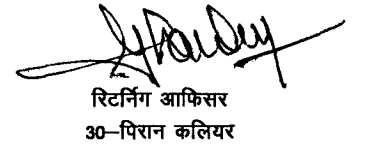 रिटर्निग आफिसर
30–पिरान कलियर